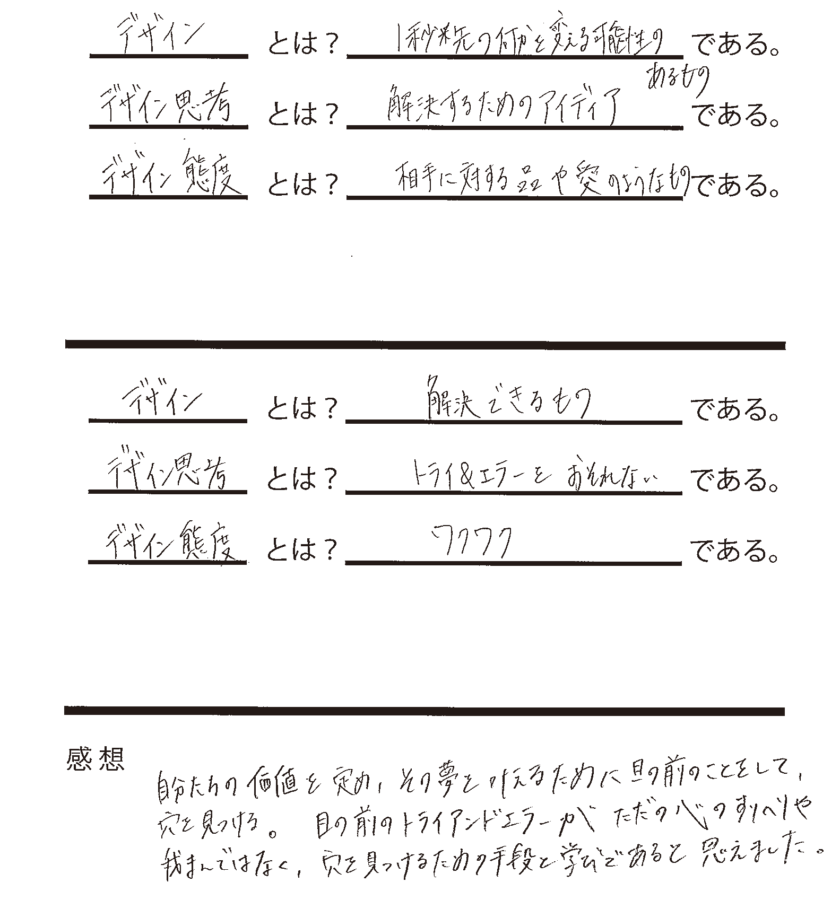 デザイン とは？ 1秒先の何かを変える可能性の である。
あるもの
デザイン思考 とは？ 解決するためのアイディア である。
デザイン態度 とは？ 相手に対する品や愛のようなもの である。
デザイン とは？ 解決できるもの である。
デザイン思考 とは？ トライ&エラーを おそれない である。
デザイン態度 とは？ ワクワク である。
感想
自分たちの価値を定め、その夢を叶えるために目の前のことをして、
穴を見つける。 目の前のトライアンドエラーが ただの心のすりへりや
我まんではなく、穴を見つけるための手段と学びであると 思えました。